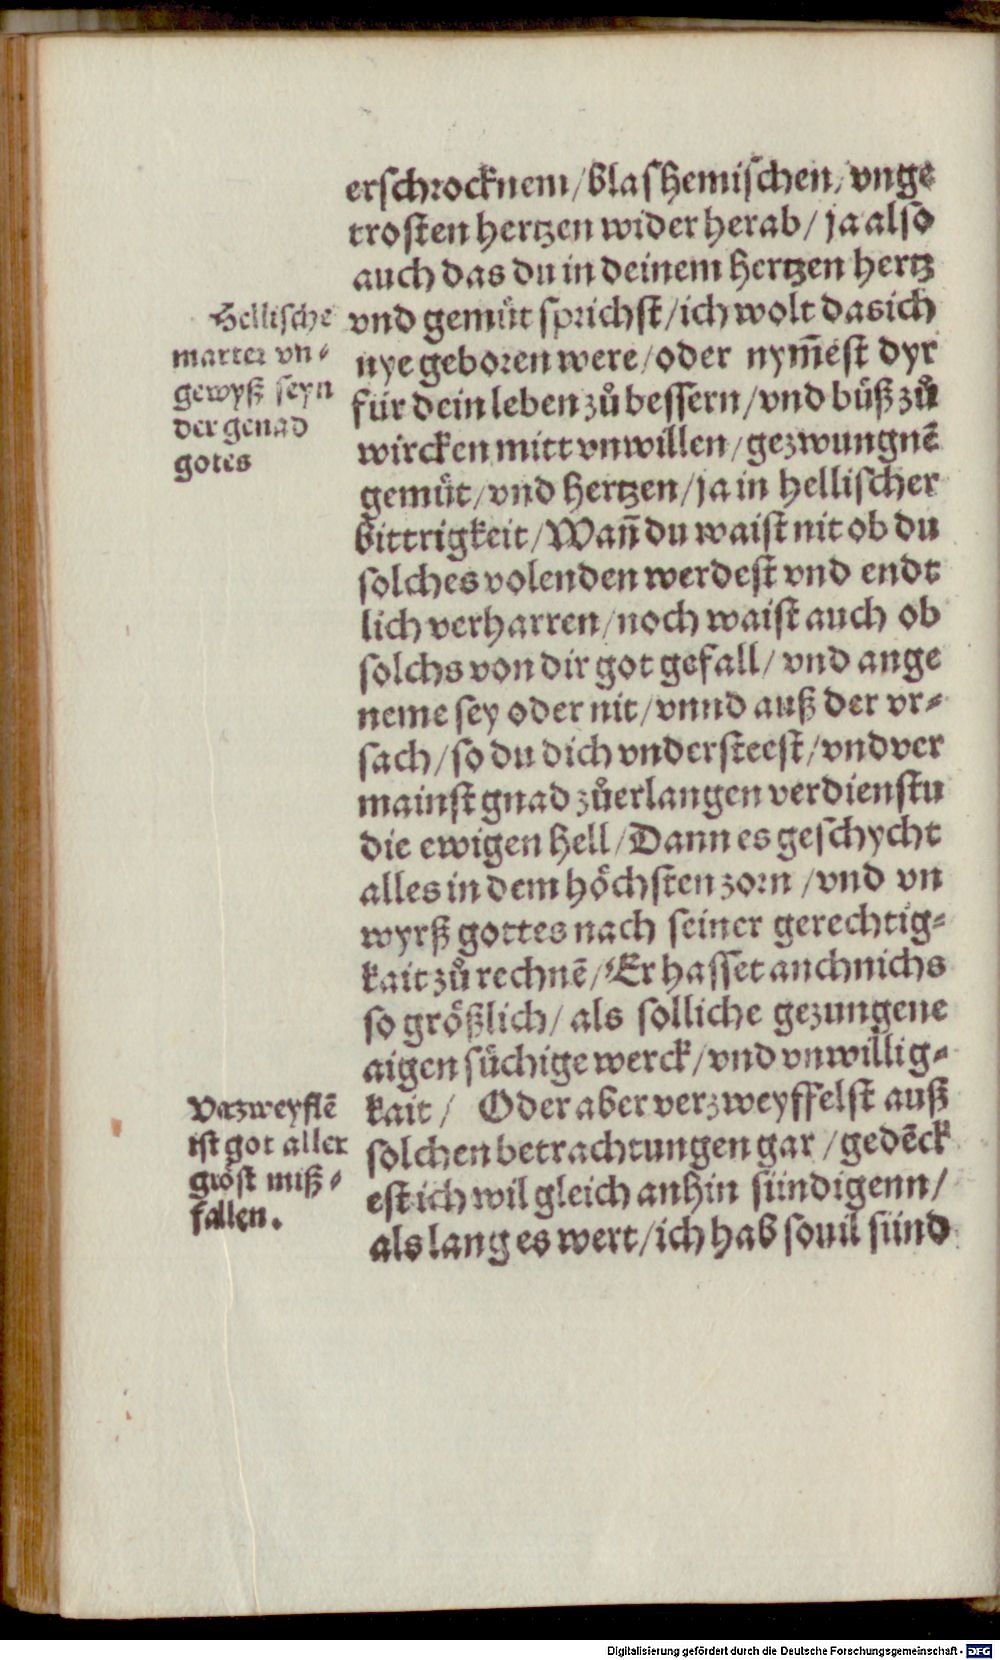 erschrocknem/blashemischen/vnge
trosten hertzen wider herab/ ja also
auch das du in deinem hertzen hertz
vnd gemüt sprichst/ich wolt das ich
nye geboren were/oder nym̄est dyr
für dein leben zů bessern/vnd bůß zů
wircken mitt vnwillen/gezwungnē
gemüt/vnd hertzen/ja in hellischer
bittrigkeit/Wan̄ du waist nit ob du
solches volenden werdest vnd endt
lich verharren/noch waist auch ob
solchs von dir got gefall/ vnd ange
neme sey oder nit/vnnd auß der vr⸗
sach/so du dich vndersteest/vnd ver
mainst gnad zůerlangen verdienstu
die ewigen hell/Dann es geschycht
alles in dem höchsten zorn /vnd vn
wyrß gottes nach seiner gerechtig⸗
kait zů rechnē/Er hasset anch nichs
so größlich/ als solliche gezungene
aigen süchige werck/vnd vnwillig⸗
kait / Oder aber verzweyffelst auß
solchen betrachtungen gar /gedēck
est ich wil gleich anhin sündigenn/
als lang es wert/ich hab souil sünd
Hellische
marter vn⸗
gewyß seyn
der genad
gotes
Vazweyflē
ist got aller
gröst miß⸗
fallen.
Digitalisierung gefördert durch die Deutsche Forschungsgemeinschaft - DFG